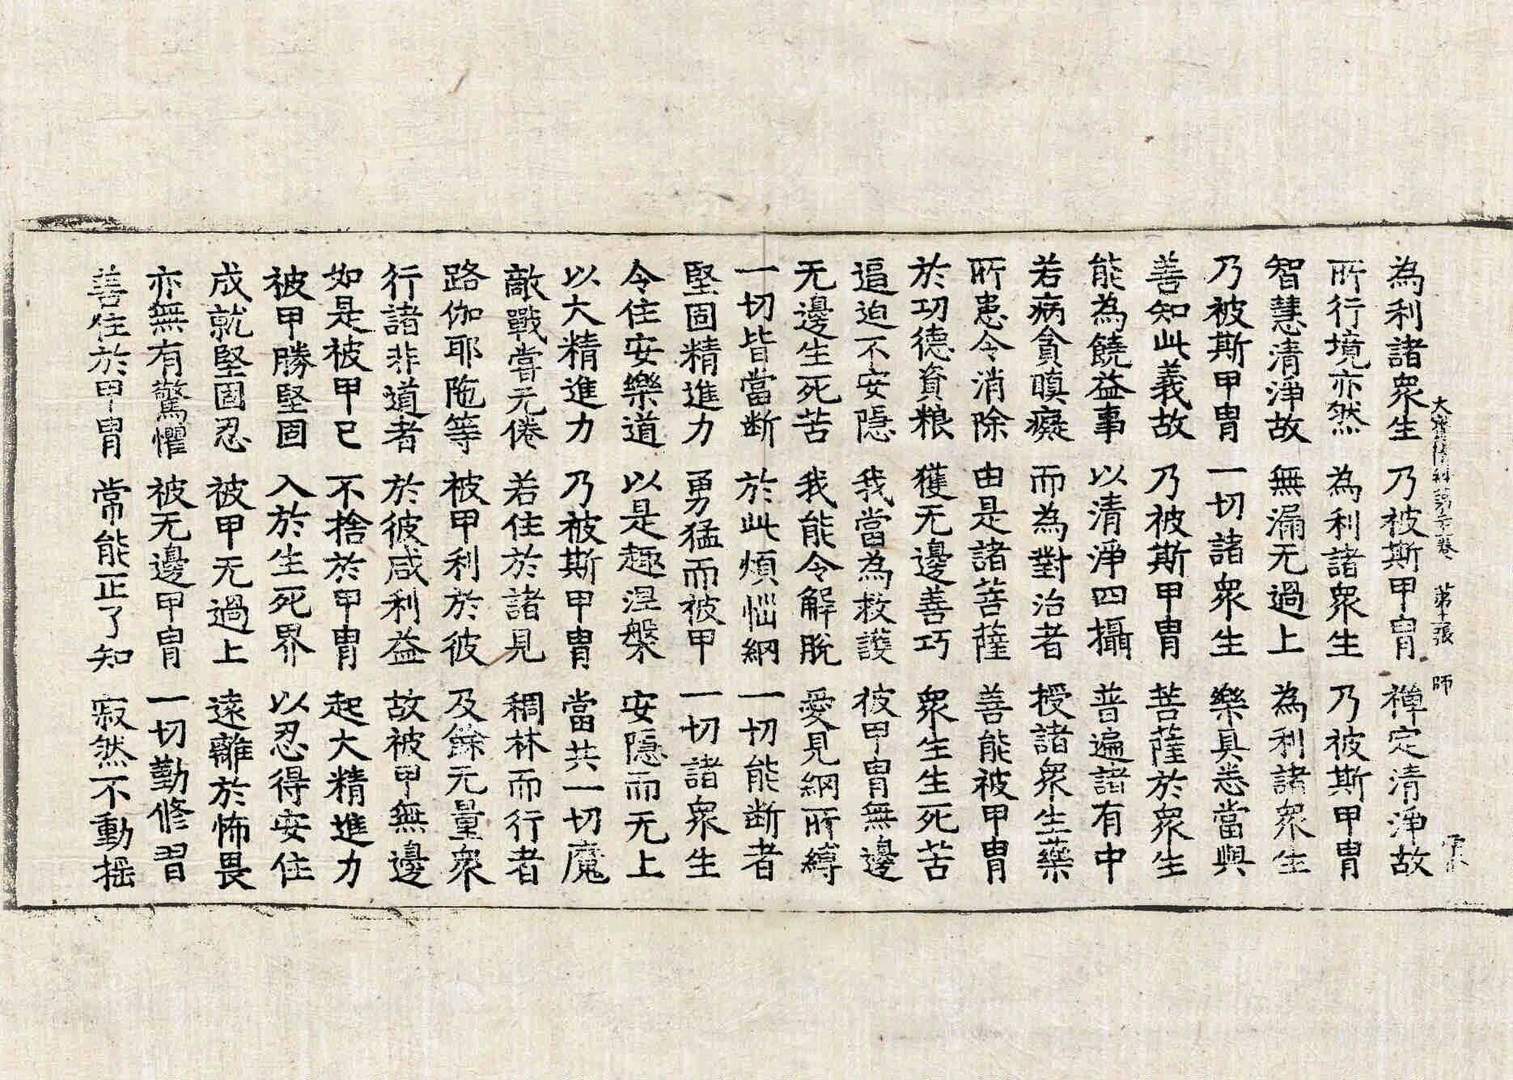 為利諸衆生　乃被斯甲胄　禪定清淨故
大寶積經第二十卷　第十張　師
所行境亦然　為利諸衆生　乃被斯甲胄
智慧清淨故　無漏无過上　為利諸衆生
乃被斯甲胄　一切諸衆生　樂具悉當與
善知此義故　乃被斯甲胄　菩薩於衆生
能為饒益事　以清淨四攝　普遍諸有中
若病貪瞋癡　而為對治者　授諸衆生藥
所患令消除　由是諸菩薩　善能被甲胄
於功德資粮　獲无邊善巧　衆生生死苦
逼迫不安隱　我當為救護　被甲胄無邊
无邊生死苦　我能令解脫　愛見網所縛
一切皆當断　於此煩惱網　一切能断者
堅固精進力　勇猛而被甲　一切諸衆生
令住安樂道　以是趣涅槃　安隱而无上
以大精進力　乃被斯甲胄　當共一切魔
敵戰甞无倦　若住於諸見　稠林而行者
路伽耶陁等　被甲利於彼　及餘无量衆
行諸非道者　於彼咸利益　故被甲無邊
如是被甲已　不捨於甲胄　起大精進力
被甲勝堅固　入於生死界　以忍得安住
成就堅固忍　被甲无過上　遠離於怖畏
亦無有驚懼　被无邊甲胄　一切勤修習
善住於甲胄　常能正了知　寂然不動摇